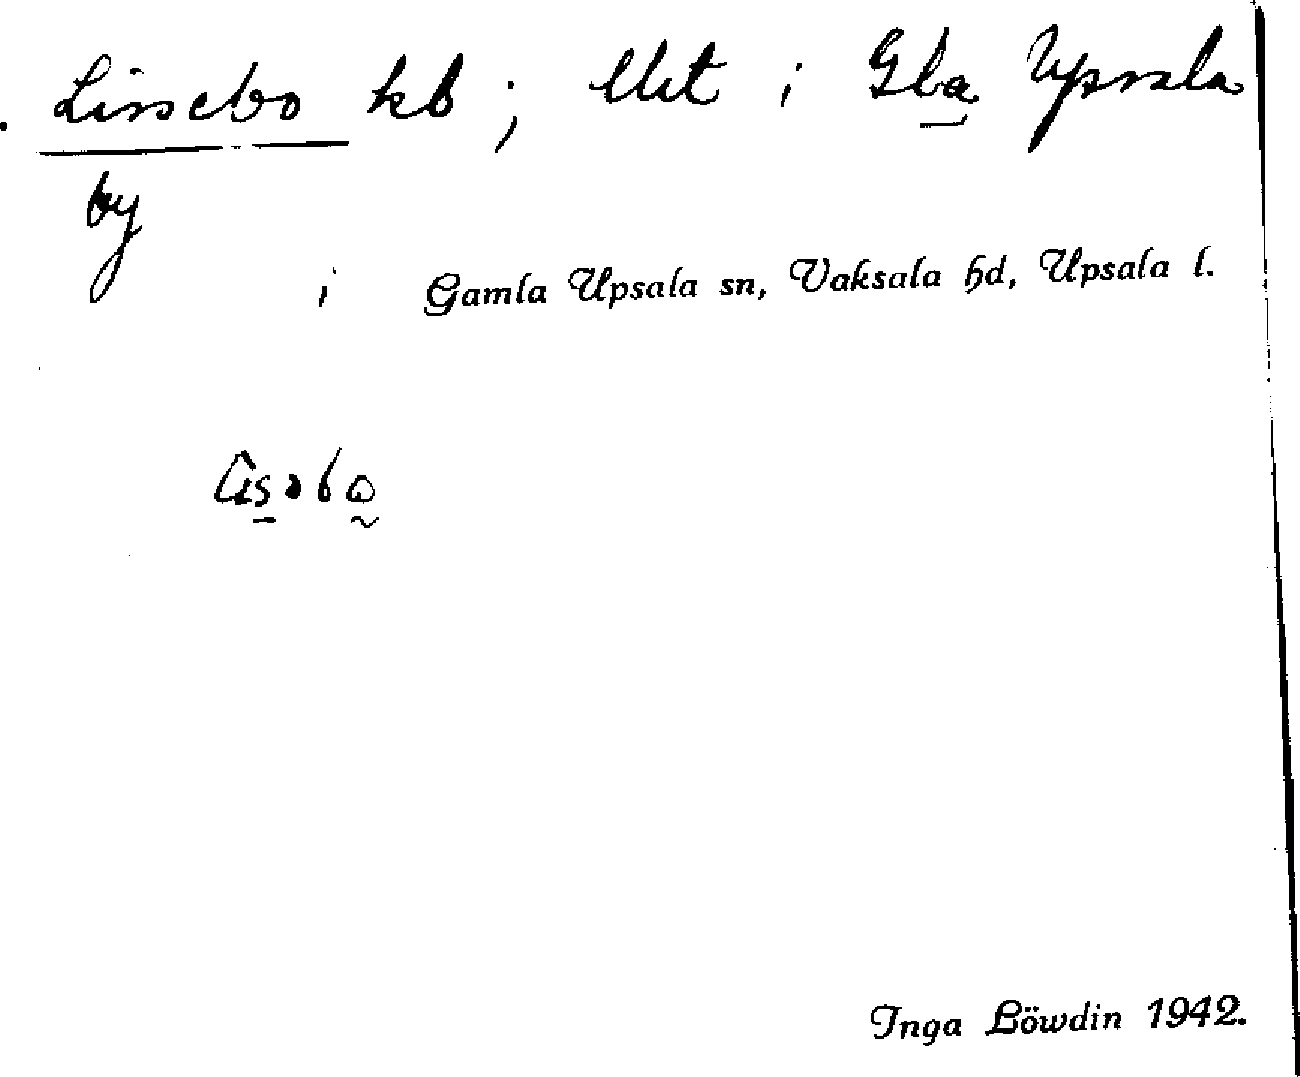 Lissebo kb; Ulct i Gla Upsala
by
i Gamla Upsala sn, Vaksala hd, Upsala l.
Inga Löwdin 1942.